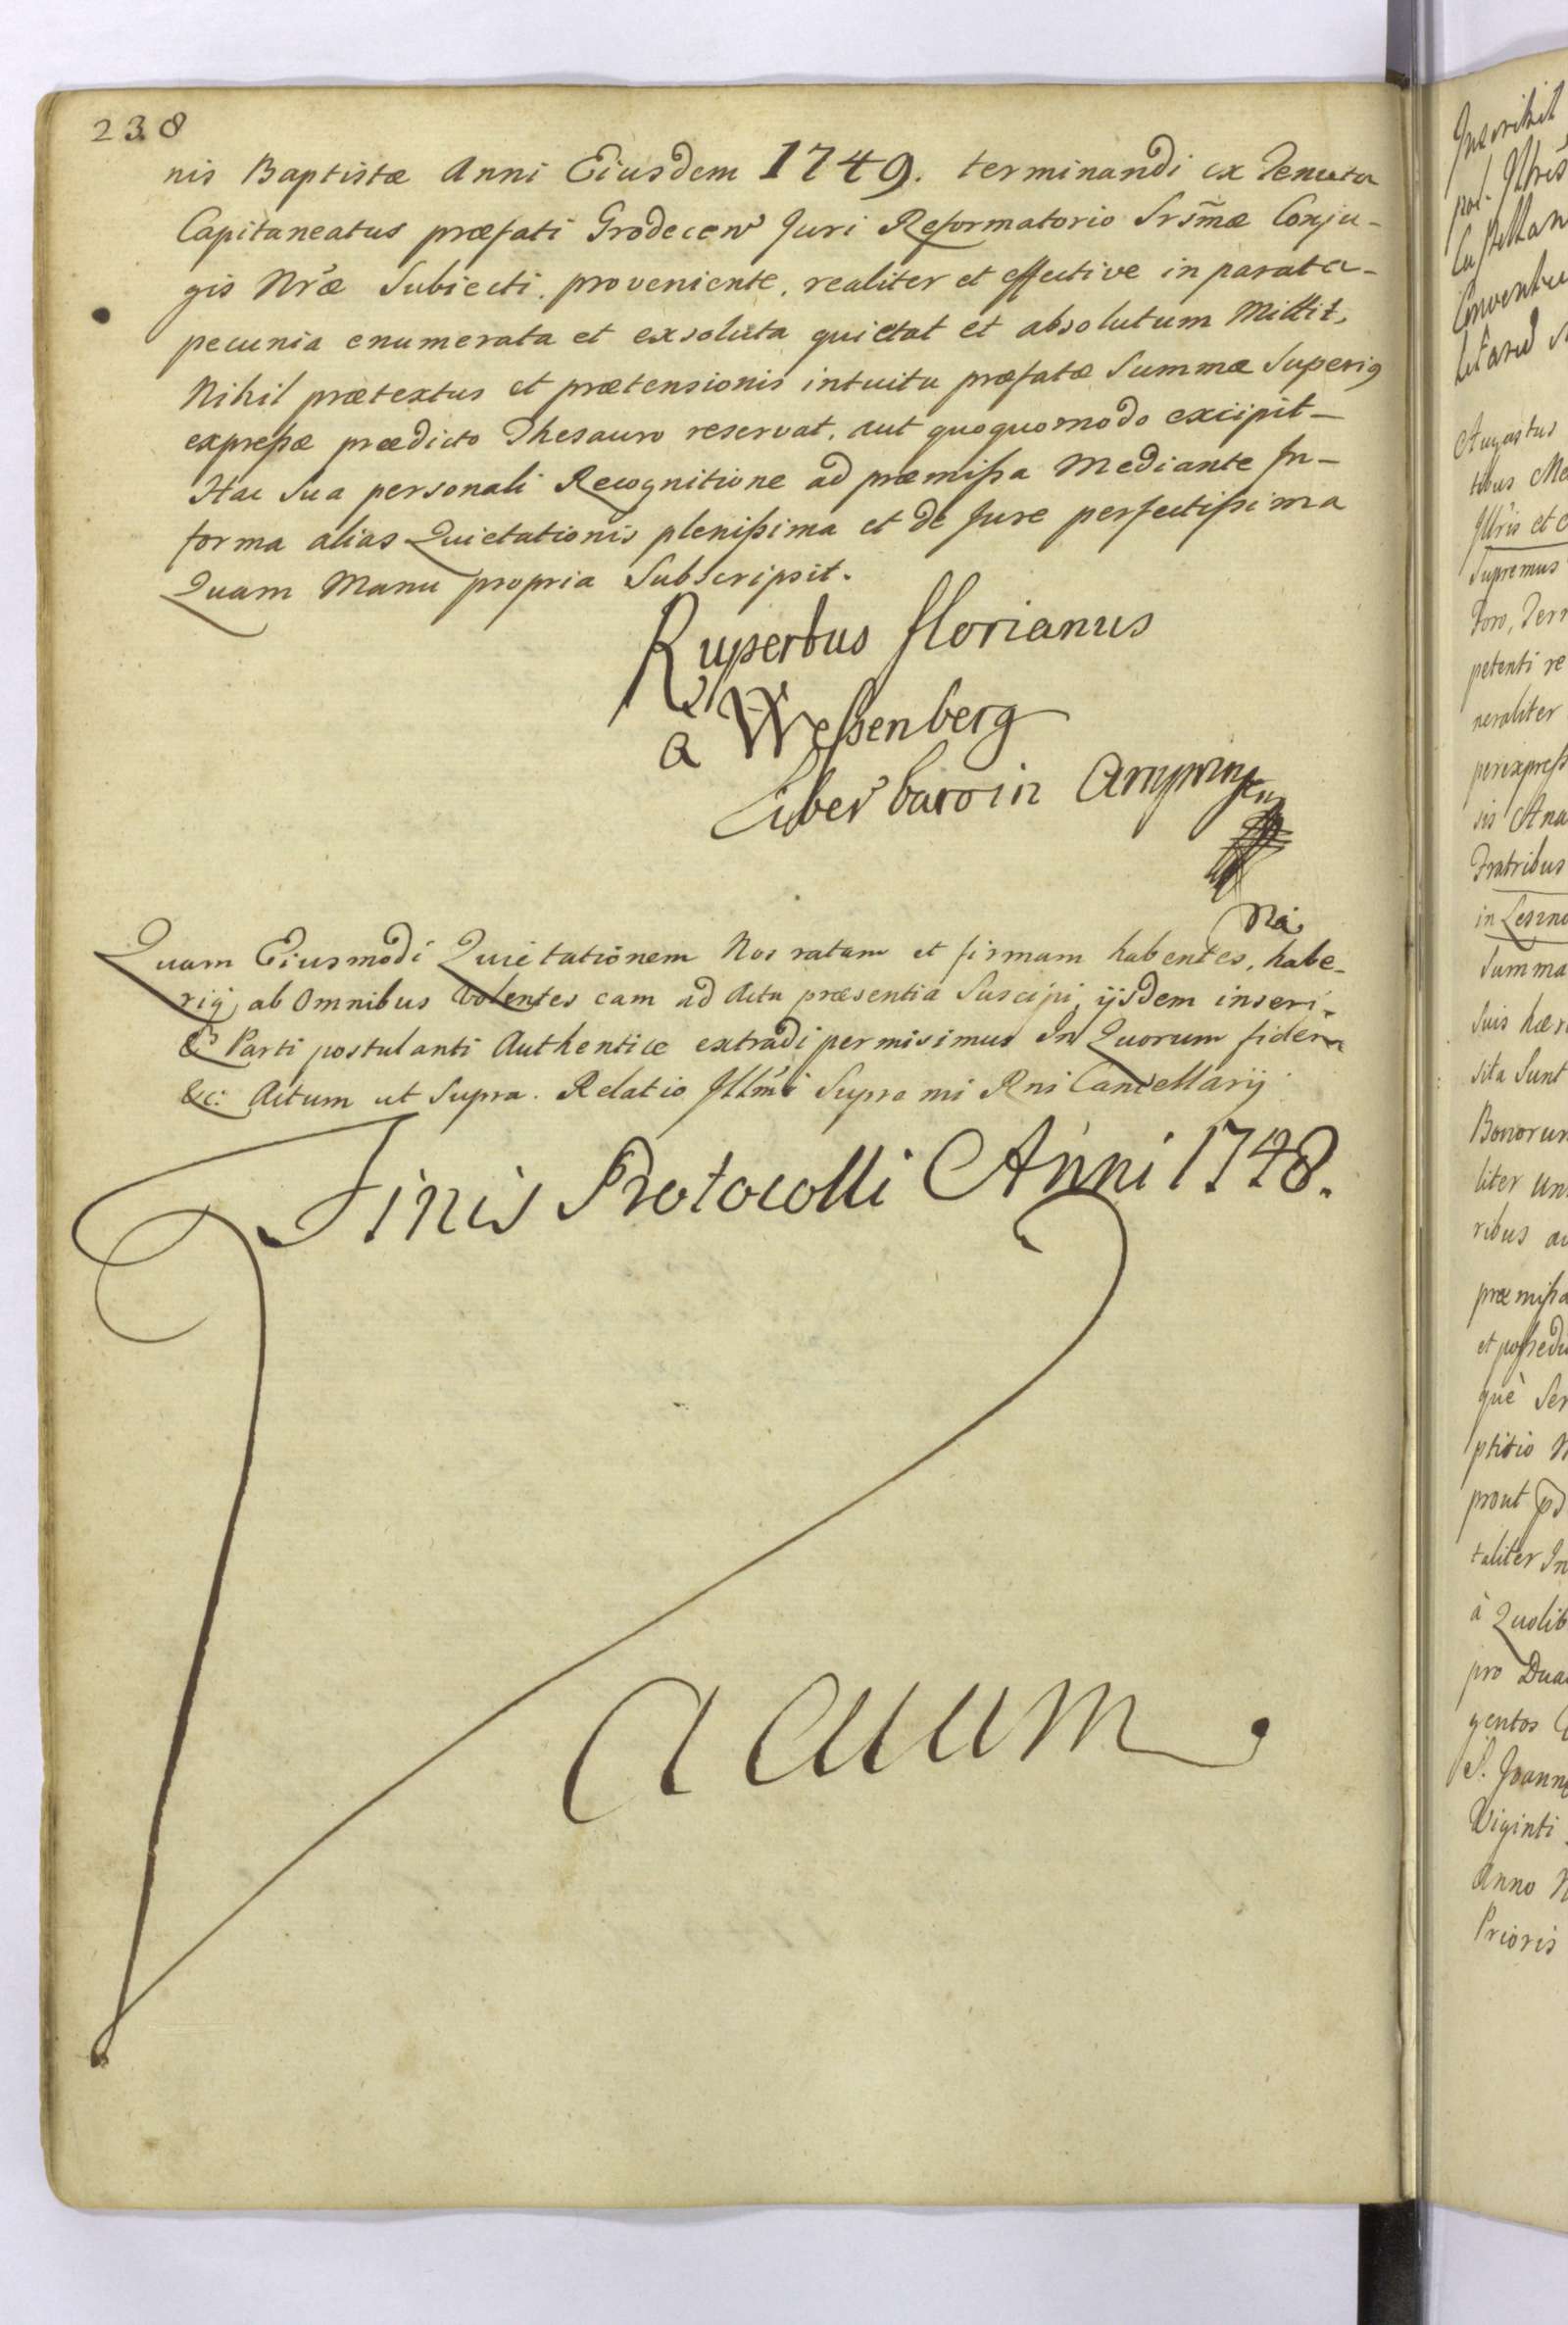 238
nis Baptistæ Anni Eiusdem 1749. terminandi ex Tenuta
Capitaneatus præfati Grodecen Juri Reformatorio Srsm̃æ Conju-
gis Nræ Subiecti. proveniente, realiter et effective in parata-
pecunia enumerata et exsoluta quietat et absolutum Mittit,
Nihil prætextus et prætensionis intuitu præfatæ Summæ Superig
expreßæ prædicto Thesauro reservat, aut quoquomodo excipit-
Hac Sua personali Recognitione ad præmißa Mediante In-
forma alias Quietationis plenißima et de Jure perfectißima
Quam Manu propria Subscripsit.
Rupertus florianus
a Weßenberg
Liber baro in
Quam Eiusmodi Quietationem Nos ratam et firmam habentes, habe-
riq ab Omnibus Volentes eam ad Acta præsentia Suscipi, ijsdem inseri,
& Parti postulanti Authentice extradi permisimus In Quorum fidem
&c: Actum ut Supra. Relatio Illmi Supremi Rni Cancellarij
Finis Protocolli Anni 1748.
Vacuum.
Inscribit
pal. Illris
Castellan
Augustus
tibus Me
Illris et
Supremus
Foro, Terr
petenti re
neraliter
perexpreß
sis Ana
Fratribus
in Leszno
Summa
Suis hær
sita Sunt
Bonorum
liter
ribus au
præmißa
et poßedi
què Ser
ptitio N
prout
taliter In
à Quolib
pro Dua
gentos
S. Joann
Viginti
Anno N
Prioris